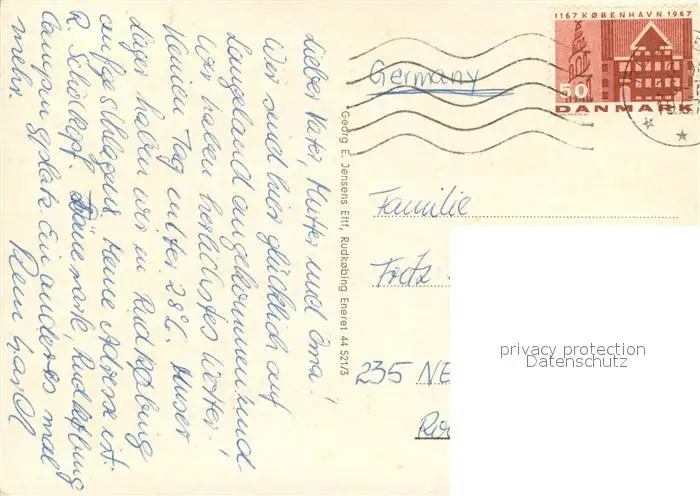 Lieber Vater, Mutter und Oma!
Wir sind hier glücklich auf
Langeland angekommen und
wir haben herlichstes Wetter.
Keinen Tag unter 28°C. Unser
Lager haben wir in Rudköbing
aufgeschlagen. Meine Adresse ist:
R. Dänemark, Rudköbing
Campingplatz. Ein anderes mal
mehr.
Georg E. Jensens Eftf., Rudkøbing Eneret 44 521/3
1167 KØBENHAVN 1967
50
DANMARK
Germany
Familie
Fritz
235 NE
privacy protection
Datenschutz